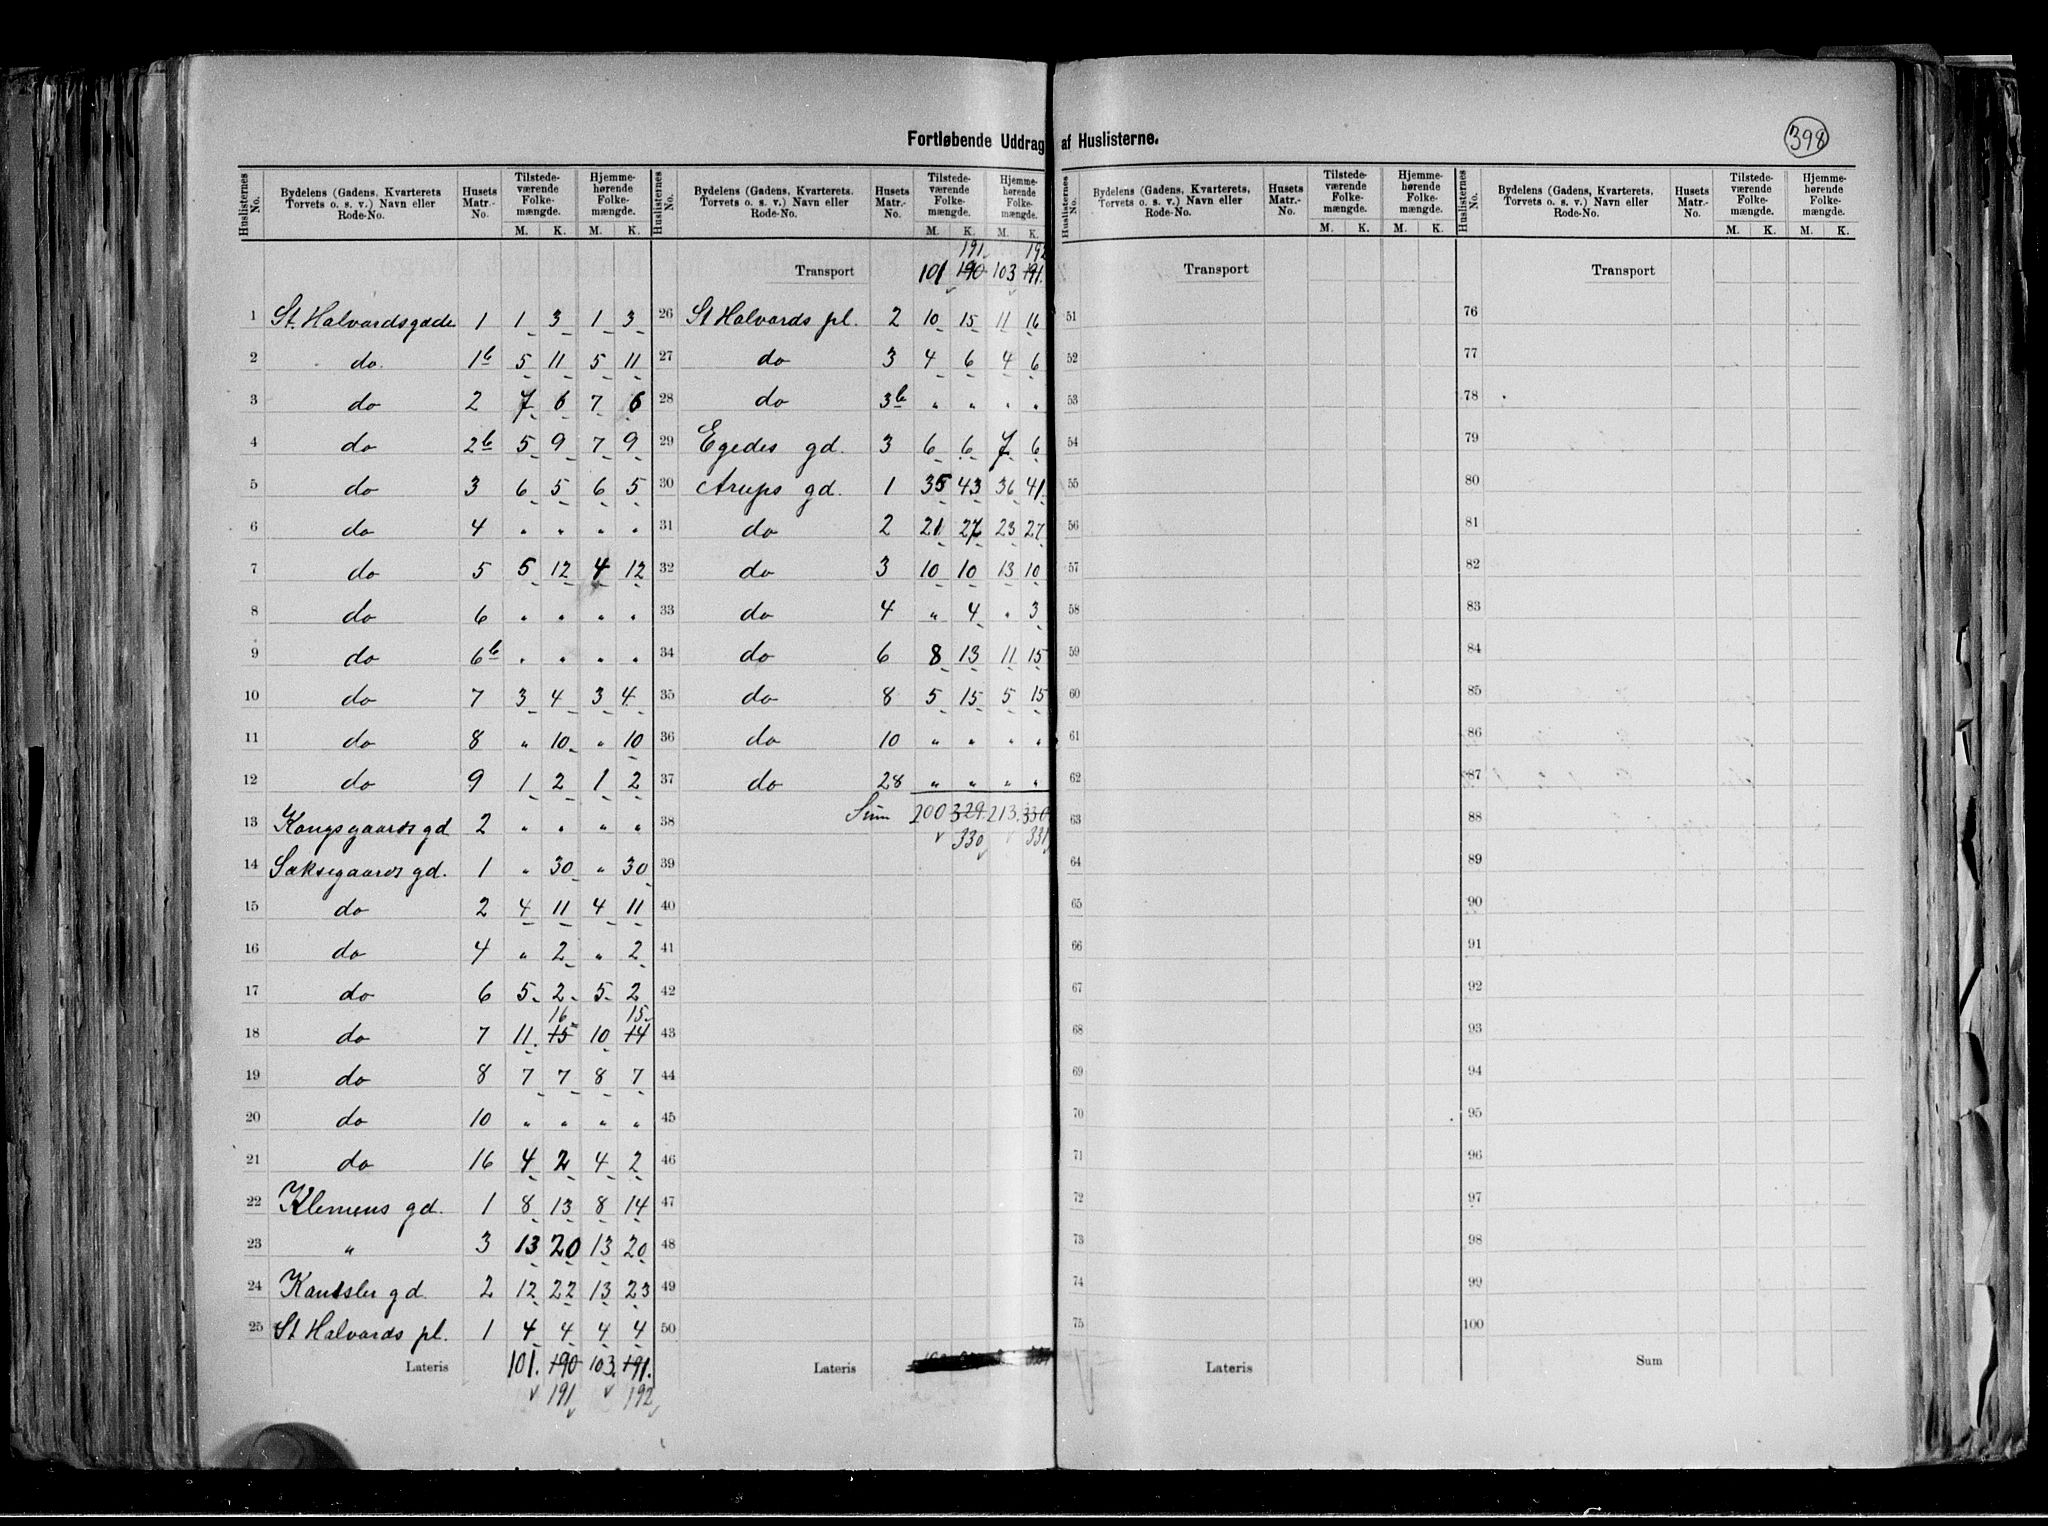 Fortløbende Uddrag af Huslisterne.
398
Huslisternes No. | Bydelens (Gadens, Kvarterets Torvets o. s. v.) Navn eller Rode-No. | Husets Matr.-No. | Tilstede-værende Folke-mængde. M. K. | Hjemme-hørende Folke-mængde. M. K.
1 St. Halvardsgade 1 1 3 1 3
2 do. 1b 5 11 5 11
3 do 2 7 6 7 6
4 do 2b 5 9 7 9
5 do 3 6 5 6 5
6 do 4 " " " "
7 do 5 5 12 4 12
8 do 6 " " " "
9 do 6b " " " "
10 do 7 3 4 3 4
11 do 8 " 10 " 10
12 do 9 1 2 1 2
13 Kongsgaards gd 2 " " " "
14 Saksegaards gd. 1 " 30 " 30
15 do 2 4 11 4 11
16 do 4 " 2 " 2
17 do 6 5 2 5 2
16 15
18 do 7 11 15 10 14
19 do 8 7 7 8 7
20 do 10 " " " "
21 do 16 4 2 4 2
22 Klemens gd. 1 8 13 8 14
23 " 3 13 20 13 20
24 Kantsler gd. 2 12 22 13 23
25 St Halvards pl. 1 4 4 4 4
Lateris 101. 190 103. 191.
191 192
Huslisternes No. | Bydelens (Gadens, Kvarterets. Torvets o. s. v.) Navn eller Rode-No. | Husets Matr.-No. | Tilstede-værende Folke-mængde. M. K. | Hjemme-hørende Folke-mængde. M. K.
191. 192
Transport 101 190 103 191.
26 St Halvards pl. 2 10 15 11 16
27 do 3 4 6 4 6
28 do 3b " " " "
29 Egedes gd. 3 6 6 7 6
30 Arups gd. 1 35 43 36 41
31 do 2 21 27 23 27
32 do 3 10 10 13 10
33 do 4 " 4 " 3
34 do 6 8 13 11 15
35 do 8 5 15 5 15
36 do 10 " " " "
37 do 28 " " " "
38 Sum 200 329 213. 330
330 331
39
40
41
42
43
44
45
46
47
48
49
50
Lateris
Huslisternes No. | Bydelens (Gadens, Kvarterets, Torvets o. s. v.) Navn eller Rode-No. | Husets Matr.-No. | Tilstede-værende Folke-mængde. M. K. | Hjemme-hørende Folke-mængde. M. K.
Transport
51
52
53
54
55
56
57
58
59
60
61
62
63
64
65
66
67
68
69
70
71
72
73
74
75
Lateris
Huslisternes No. | Bydelens (Gadens, Kvarterets, Torvets o. s. v.) Navn eller Rode-No. | Husets Matr.-No. | Tilstede-værende Folke-mængde. M. K. | Hjemme-hørende Folke-mængde. M. K.
Transport
76
77
78
79
80
81
82
83
84
85
86
87
88
89
90
91
92
93
94
95
96
97
98
99
100
Sum